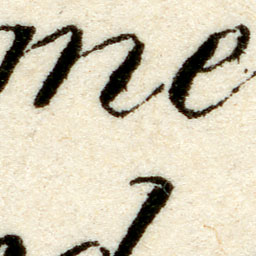 me
d